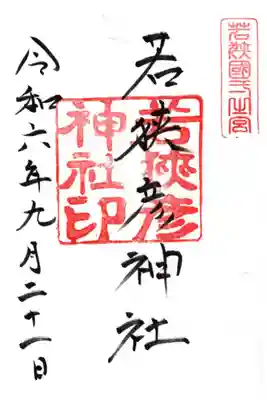 若狹國一之宮
若狹彦神社
若狹彦
神社印
令和六年九月二十一日